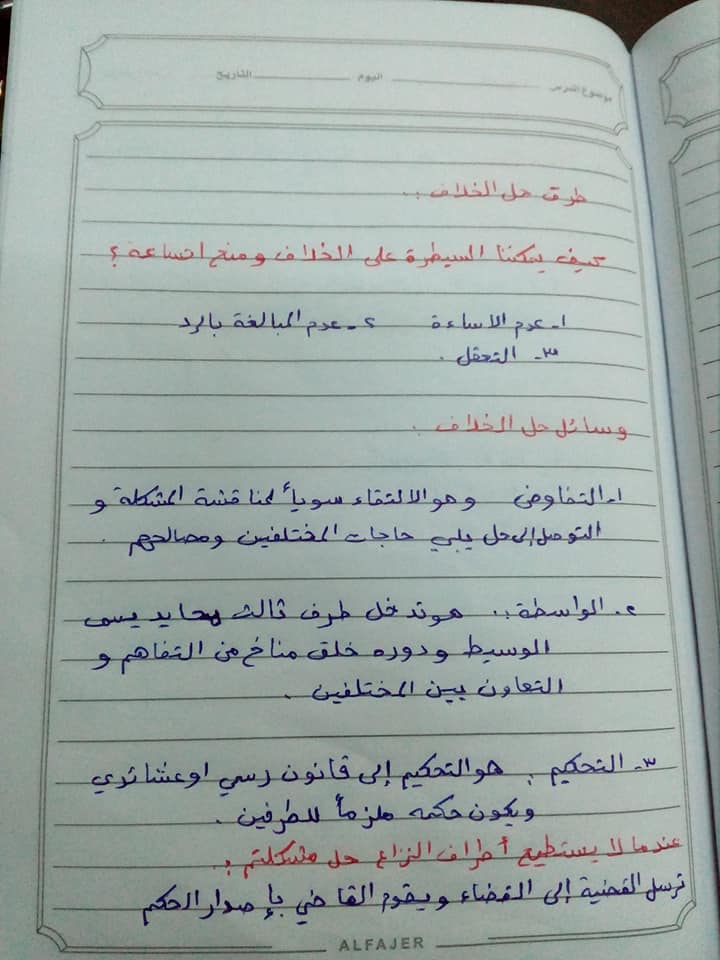 موضوع الدرس اليوم التاريخ
طرق حل الخلاف :
كيف يمكننا السيطرة على الخلاف ومنع اتساعة ؟
١- عدم الاساءة ٢- عدم المبالغة بالرد
٣- التعقل .
وسائل حل الخلاف :
١- التفاوض وهو الالتقاء سوياً لمناقشة المشكلة و
التوصل إلى حل يلبي حاجات المختلفين ومصالحهم .
٢- الواسطة : هو تدخل طرف ثالث محايد يسمى
الوسيط ودوره خلق مناخ من التفاهم و
التعاون بين المختلفين .
٣- التحكيم : هو التحكيم إلى قانون رسمي او عشائري
ويكون حكمه ملزماً للطرفين .
عندما لا يستطيع أطراف النزاع حل مشكلتم :
ترسل القضية إلى القضاء ويقوم القاضي بإصدار الحكم
ALFAJER